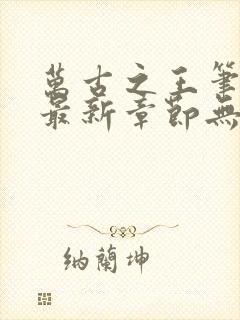 萬古之王筆
最新章節無
納蘭坤